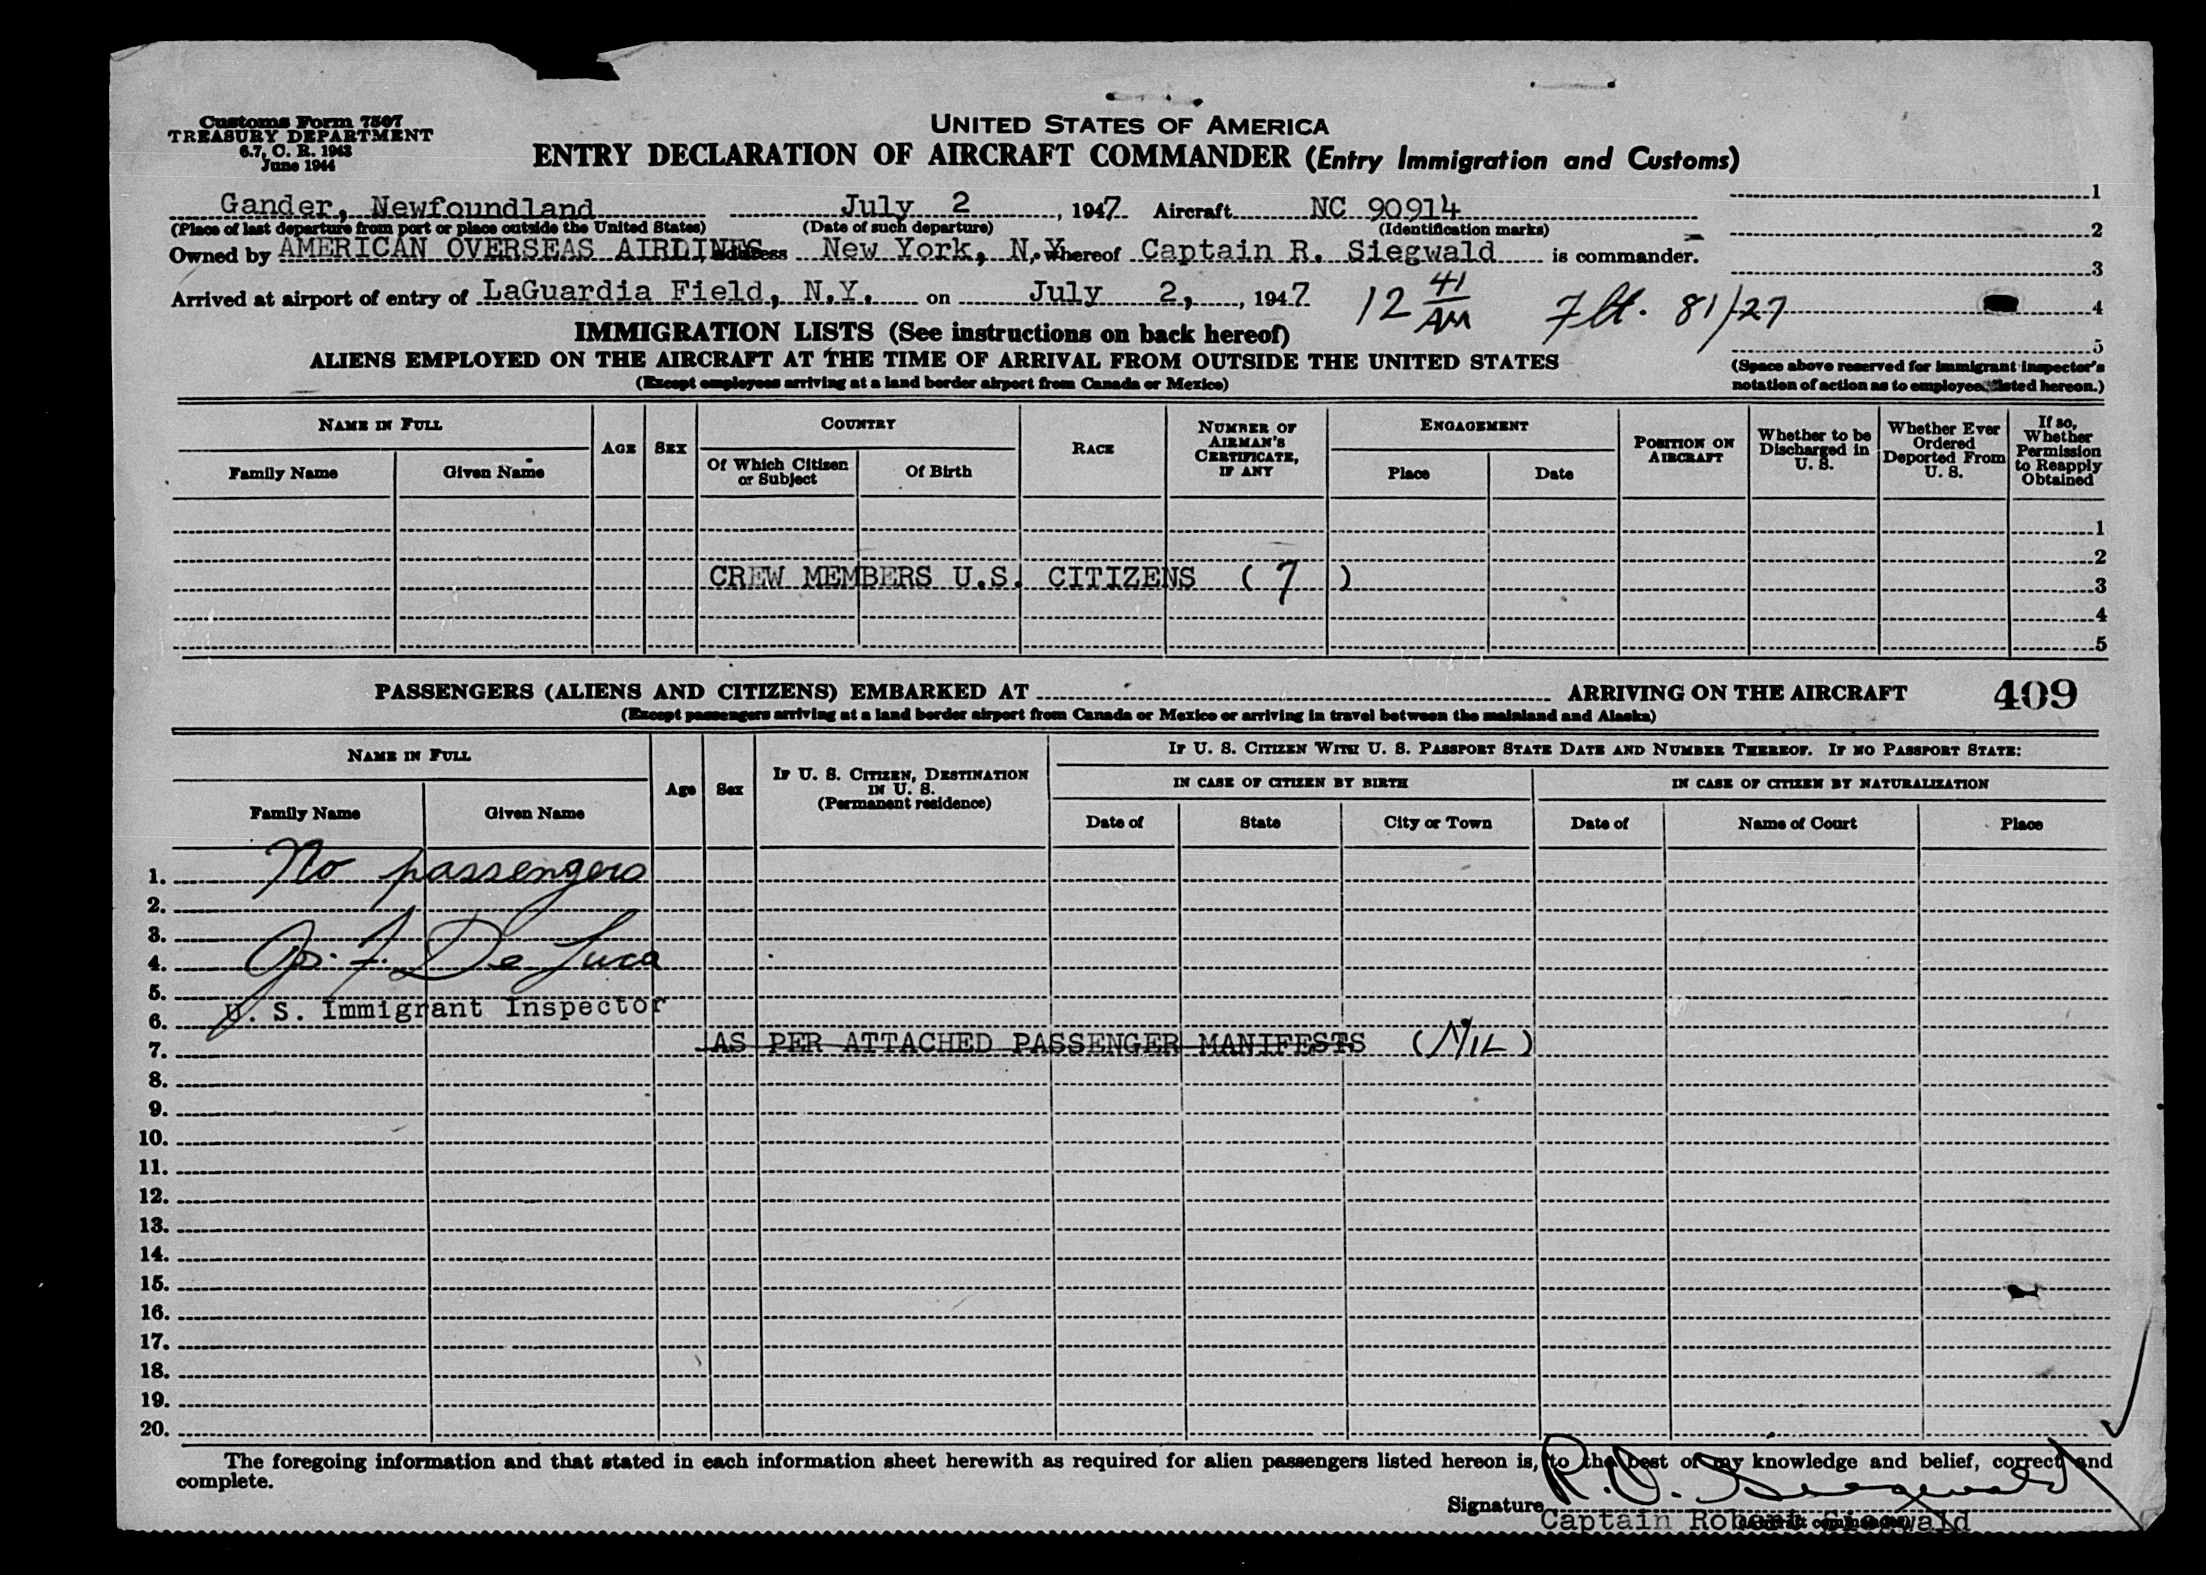 Customs Form 7507
TREASURY DEPARTMENT
6.7, C. R. 1943
June 1944
UNITED STATES OF AMERICA
ENTRY DECLARATION OF AIRCRAFT COMMANDER (Entry Immigration and Customs)
Gander, Newfoundland July 2, 1947 Aircraft NC 90914 1
(Place of last departure from port or place outside the United States) (Date of such departure) (Identification marks) 2
Owned by AMERICAN OVERSEAS AIRLINES, address New York, N.Y. whereof Captain R. Siegwald is commander.
3
Arrived at airport of entry of LaGuardia Field, N.Y. on July 2, , 1947 12 41 AM Flt. 81/27 4
5
IMMIGRATION LISTS (See instructions on back hereof)
ALIENS EMPLOYED ON THE AIRCRAFT AT THE TIME OF ARRIVAL FROM OUTSIDE THE UNITED STATES
(Except employees arriving at a land border airport from Canada or Mexico)
(Space above reserved for immigrant inspector's
notation of action as to employees listed hereon.)
NAME IN FULL
Family Name Given Name
AGE SEX
COUNTRY
Of Which Citizen or Subject Of Birth
RACE
NUMBER OF AIRMAN'S CERTIFICATE, IF ANY
ENGAGEMENT
Place Date
POSITION ON AIRCRAFT
Whether to be Discharged in U. S.
Whether Ever Ordered Deported From U. S.
If so, Whether Permission to Reapply Obtained
1
2
CREW MEMBERS U.S. CITIZENS ( 7 ) 3
4
5
PASSENGERS (ALIENS AND CITIZENS) EMBARKED AT ARRIVING ON THE AIRCRAFT 409
(Except passengers arriving at a land border airport from Canada or Mexico or arriving in travel between the mainland and Alaska)
NAME IN FULL
Family Name Given Name
Age Sex
IF U. S. CITIZEN, DESTINATION IN U. S.
(Permanent residence)
IF U. S. CITIZEN WITH U. S. PASSPORT STATE DATE AND NUMBER THEREOF. IF NO PASSPORT STATE:
IN CASE OF CITIZEN BY BIRTH IN CASE OF CITIZEN BY NATURALIZATION
Date of State City or Town Date of Name of Court Place
1. No passengers
2.
3.
4. Jos. F. De Luca
5.
U. S. Immigrant Inspector
6.
7. AS PER ATTACHED PASSENGER MANIFESTS (NIL)
8.
9.
10.
11.
12.
13.
14.
15.
16.
17.
18.
19.
20.
The foregoing information and that stated in each information sheet herewith as required for alien passengers listed hereon is, to the best of my knowledge and belief, correct and
complete.
Signature R. O. Siegwald
Captain Robert Siegwald
(Aircraft commander)